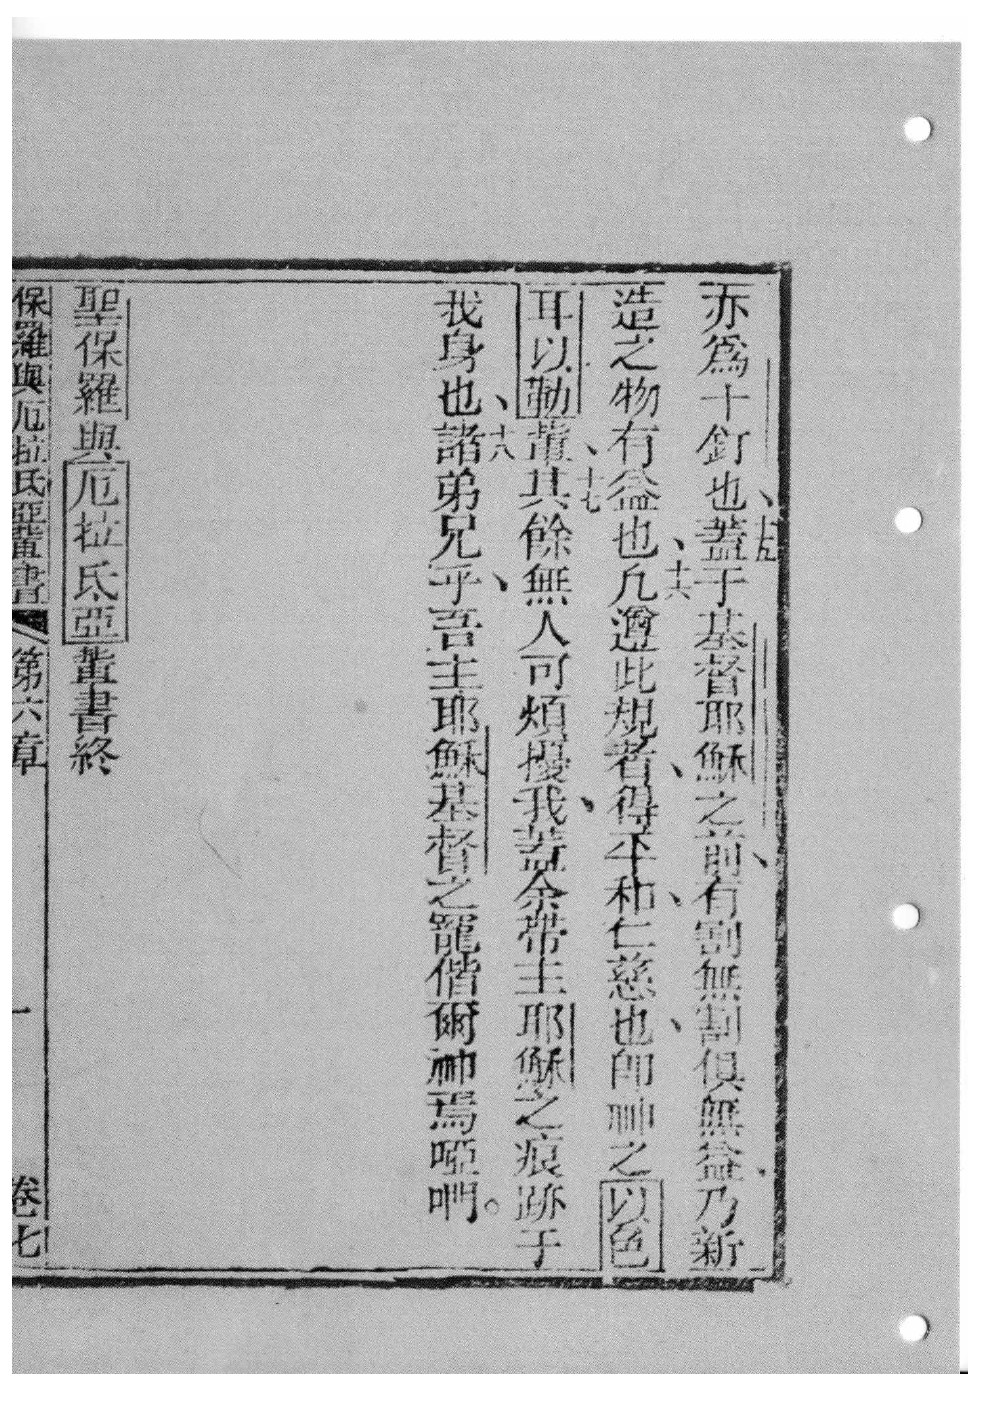 亦爲十釘也、十五蓋于基督耶穌之前、有割無割俱無益、乃新
造之物有益也、十六凡遵此規者、得平和、仁慈也、卽神之以色
耳以勒輩、十七其餘無人可煩擾我、蓋余帶主耶穌之痕跡于
我身也、十八諸弟兄乎、吾主耶穌基督之寵偕爾神焉啞唎。
聖保羅與厄拉氐亞輩書終
保羅與厄拉氐亞輩書 第六章 一 卷七